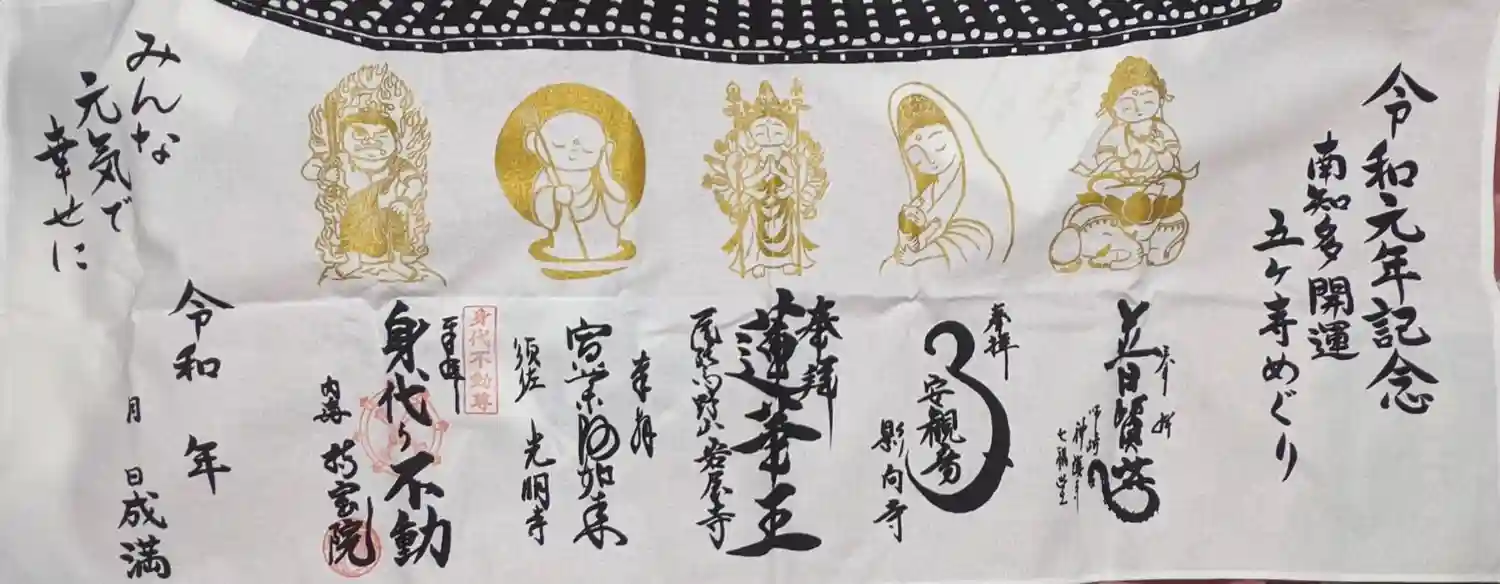 令和元年記念
南知多開運
五ヶ寺めぐり
奉拝
普賢
師崎
神護寺
七福堂
奉拝
安観音
影向寺
奉拝
蓮華王
尾張高野山岩屋寺
奉拝
如来
須佐
光明寺
身代不動尊
身代り不動
内海
持宝院
みんな
元気で
幸せに
令和 年
月 日成満